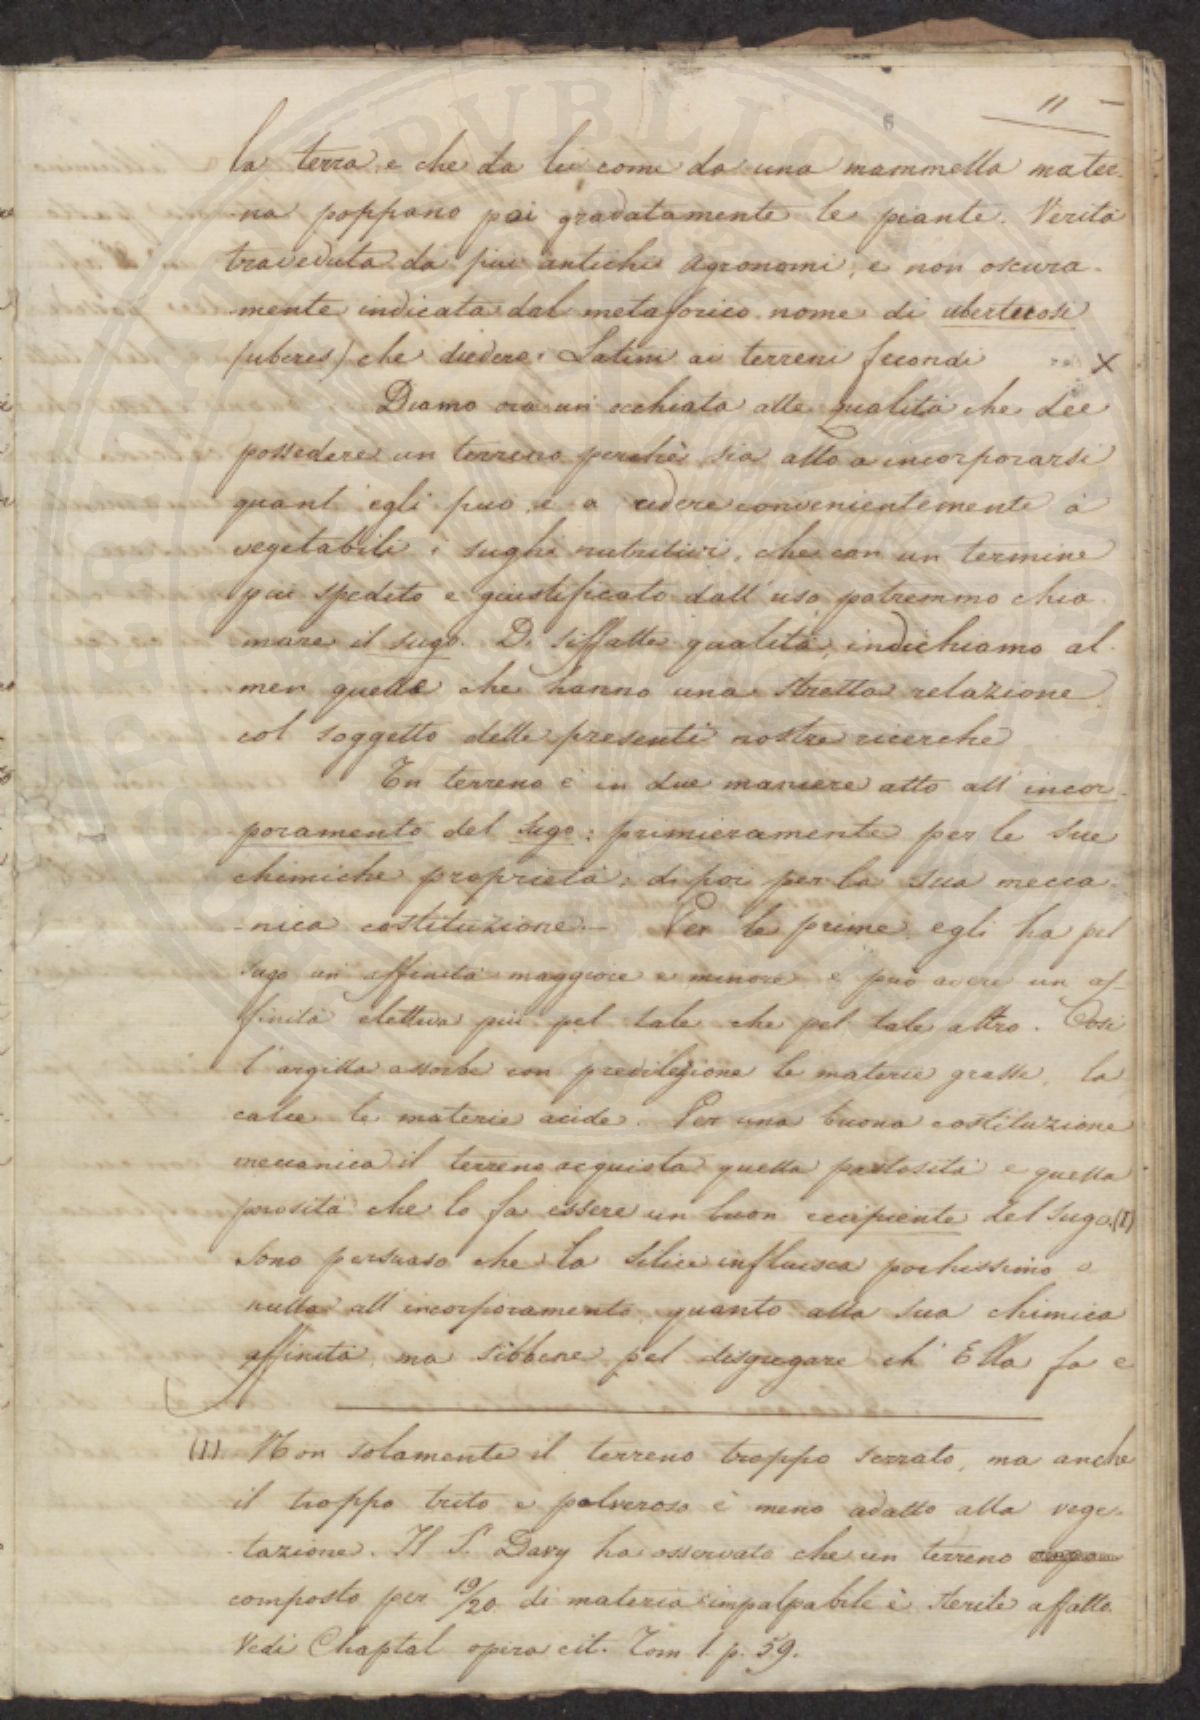 11
la terra, e che da lei come da una mammella mater-
-na poppano poi gradatamente le piante. Verità
traveduta da più antichi Agronomi, e non oscura-
-mente indicata dal metaforico nome di ubertosi
(uberes) che diedero i Latini ai terreni fecondi X
Diamo ora un occhiata alle qualità che dee
possedere un terreno perchè sia atto a incorporarsi
quant' egli può, e a cedere convenientemente a
vegetabili i sughi nutritivi, che con un termine
più spedito e giustificato dall' uso potremmo chia-
mare il sugo. Di siffatte qualità, indichiamo al-
men quelle che hanno una stretta relazione
col soggetto delle presenti nostre ricerche
Un terreno è in due maniere atto all' incor-
poramento del sugo: primieramente per le sue
chimiche proprietà; di poi per la sua mecca-
-nica costituzione.- Per le prime egli ha pel
sugo un affinità maggiore e minore e può avere un af-
finità elettiva più pel tale che pel tale altro. Così
l'argilla assorbe con predilezione le materie grasse, la
calce le materie acide. Per una buona costituzione
meccanica il terreno acquista quella pastosità e quella
porosità che lo fa essere un buon recipiente del sugo.(1)
Sono persuaso che la silice influisca pochissimo o
nulla all' incorporamento quanto alla sua chimica
affinità, ma sibbene pel disgregare ch' Ella fa e
(1) Non solamente il terreno troppo serrato, ma anche
il troppo trito e polveroso è meno adatto alla vege-
-tazione. Il S. Davy ha osservato che un terreno
composto per 19/20 di materia impalpabile è sterile affatto.
Vedi Chaptal opera cit. Tom 1 p. 59.